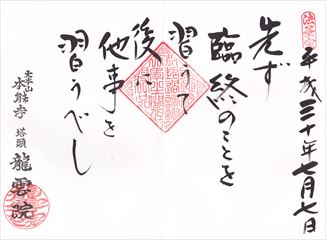 平成三十年七月七日
先ず
臨終のことを
習うて
後に
他事を
習うべし
本能寺
塔頭
龍雲院